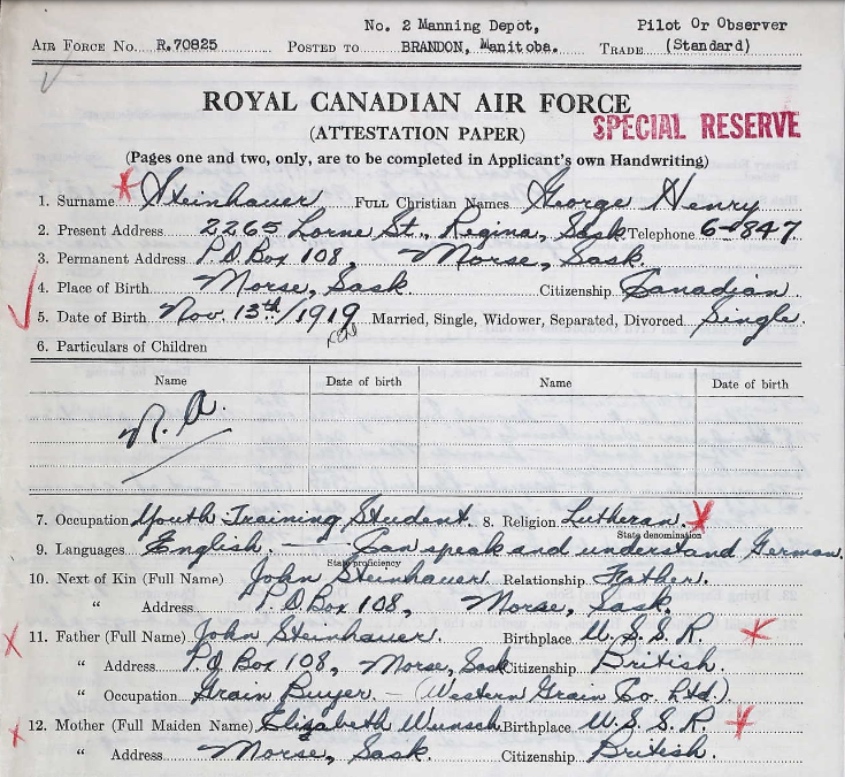 No. 2 Manning Depot, Pilot Or Observer
AIR FORCE NO. R.70825 POSTED TO BRANDON, Manitoba. TRADE (Standard)
ROYAL CANADIAN AIR FORCE
SPECIAL RESERVE
(ATTESTATION PAPER)
(Pages one and two, only, are to be completed in Applicant's own Handwriting)
1. Surname Steinhauer FULL Christian Names George Henry
2. Present Address 2265 Lorne St., Regina, Sask Telephone 6-847
3. Permanent Address P.O Box 108, Morse, Sask.
4. Place of Birth Morse, Sask. Citizenship Canadian.
5. Date of Birth Nov. 13th/1919 Married, Single, Widower, Separated, Divorced Single.
6. Particulars of Children
Name Date of birth Name Date of birth
N. A.
7. Occupation Youth Training Student. 8. Religion Lutheran.
State denomination
9. Languages English. — Can speak and understand German.
State proficiency
10. Next of Kin (Full Name) John Steinhauer Relationship Father.
" Address P.O Box 108, Morse, Sask.
11. Father (Full Name) John Steinhauer. Birthplace U.S.S.R.
" Address P.O Box 108, Morse, Sask Citizenship British.
" Occupation Grain Buyer — (Western Grain Co. Ltd.)
12. Mother (Full Maiden Name) Elizabeth Wunsch. Birthplace U.S.S.R.
" Address Morse, Sask. Citizenship British.